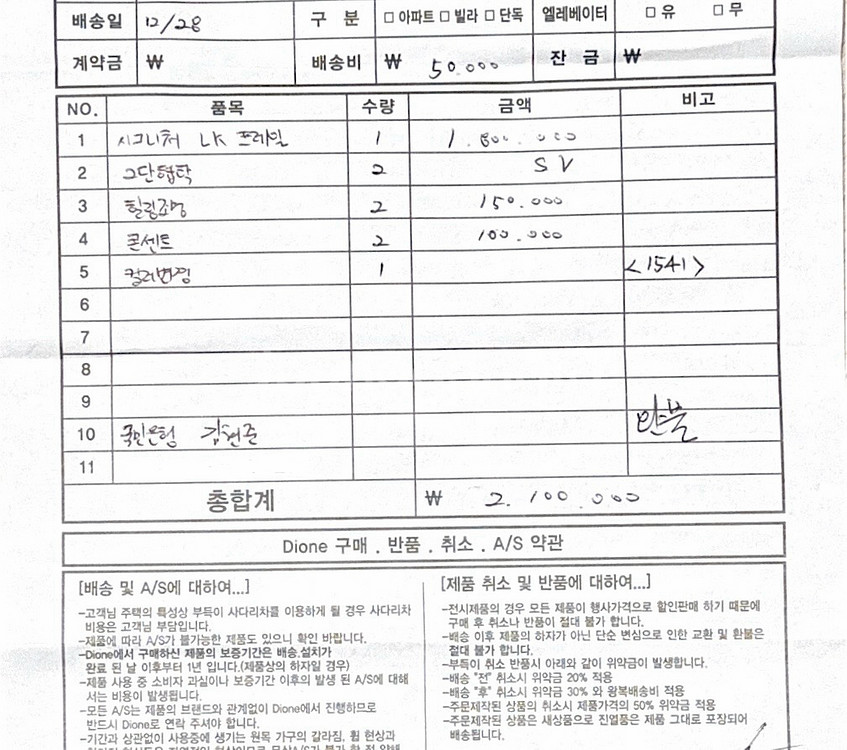 배송일 12/28 구 분 □ 아파트 □ 빌라 □ 단독 엘레베이터 □ 유 □ 무
계약금 ₩ 배송비 ₩ 50.000 잔 금 ₩
NO. 품목 수량 금액 비고
1 시그니처 LK 프레임 1 1.800.000
2 2단협탁 2 SV
3 힐링조명 2 150.000
4 콘센트 2 100.000
5 컬러변경 1 <1541>
6
7
8
9
10 국민은행 김현준 완불
11
총합계 ₩ 2.100.000
Dione 구매 . 반품 . 취소 . A/S 약관
[배송 및 A/S에 대하여...]
-고객님 주택의 특성상 부득이 사다리차를 이용하게 될 경우 사다리차
비용은 고객님 부담입니다.
-제품에 따라 A/S가 불가능한 제품도 있으니 확인 바랍니다.
-Dione에서 구매하신 제품의 보증기간은 배송.설치가
완료 된 날 이후부터 1년 입니다.(제품상의 하자일 경우)
-제품 사용 중 소비자 과실이나 보증기간 이후의 발생 된 A/S에 대해
서는 비용이 발생됩니다.
-모든 A/S는 제품의 브랜드와 관계없이 Dione에서 진행하므로
반드시 Dione로 연락 주셔야 합니다.
-기간과 상관없이 사용중에 생기는 원목 가구의 갈라짐, 휨 현상과
[제품 취소 및 반품에 대하여...]
-전시제품의 경우 모든 제품이 행사가격으로 할인판매 하기 때문에
구매 후 취소나 반품이 절대 불가 합니다.
-배송 이후 제품의 하자가 아닌 단순 변심으로 인한 교환 및 환불은
절대 불가 합니다.
-부득이 취소 반품시 아래와 같이 위약금이 발생합니다.
-배송 "전" 취소시 위약금 20% 적용
-배송 "후" 취소시 위약금 30% 와 왕복배송비 적용
-주문제작된 상품의 취소시 제품가격의 50% 위약금 적용
-주문제작된 상품의 새상품으로 진열품은 제품 그대로 포장되어
배송됩니다.